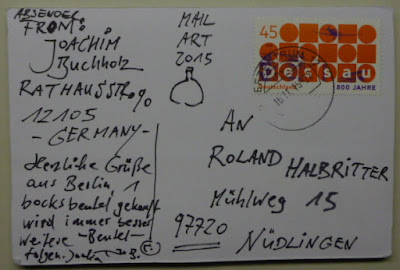 ABSENDER
FROM:
JOACHIM
Buchholz
RATHAUSSTR 90
12105
- GERMANY -
Herzliche Grüße
aus Berlin, 1
bocksbeutel gekauft
wird immer besser
weitere -Beutel-
folgen.
MAIL
ART
2015
45
Dessau
Deutschland
800 JAHRE
AN
ROLAND HALBRITTER
Mühlweg 15
97720
NÜDLINGEN